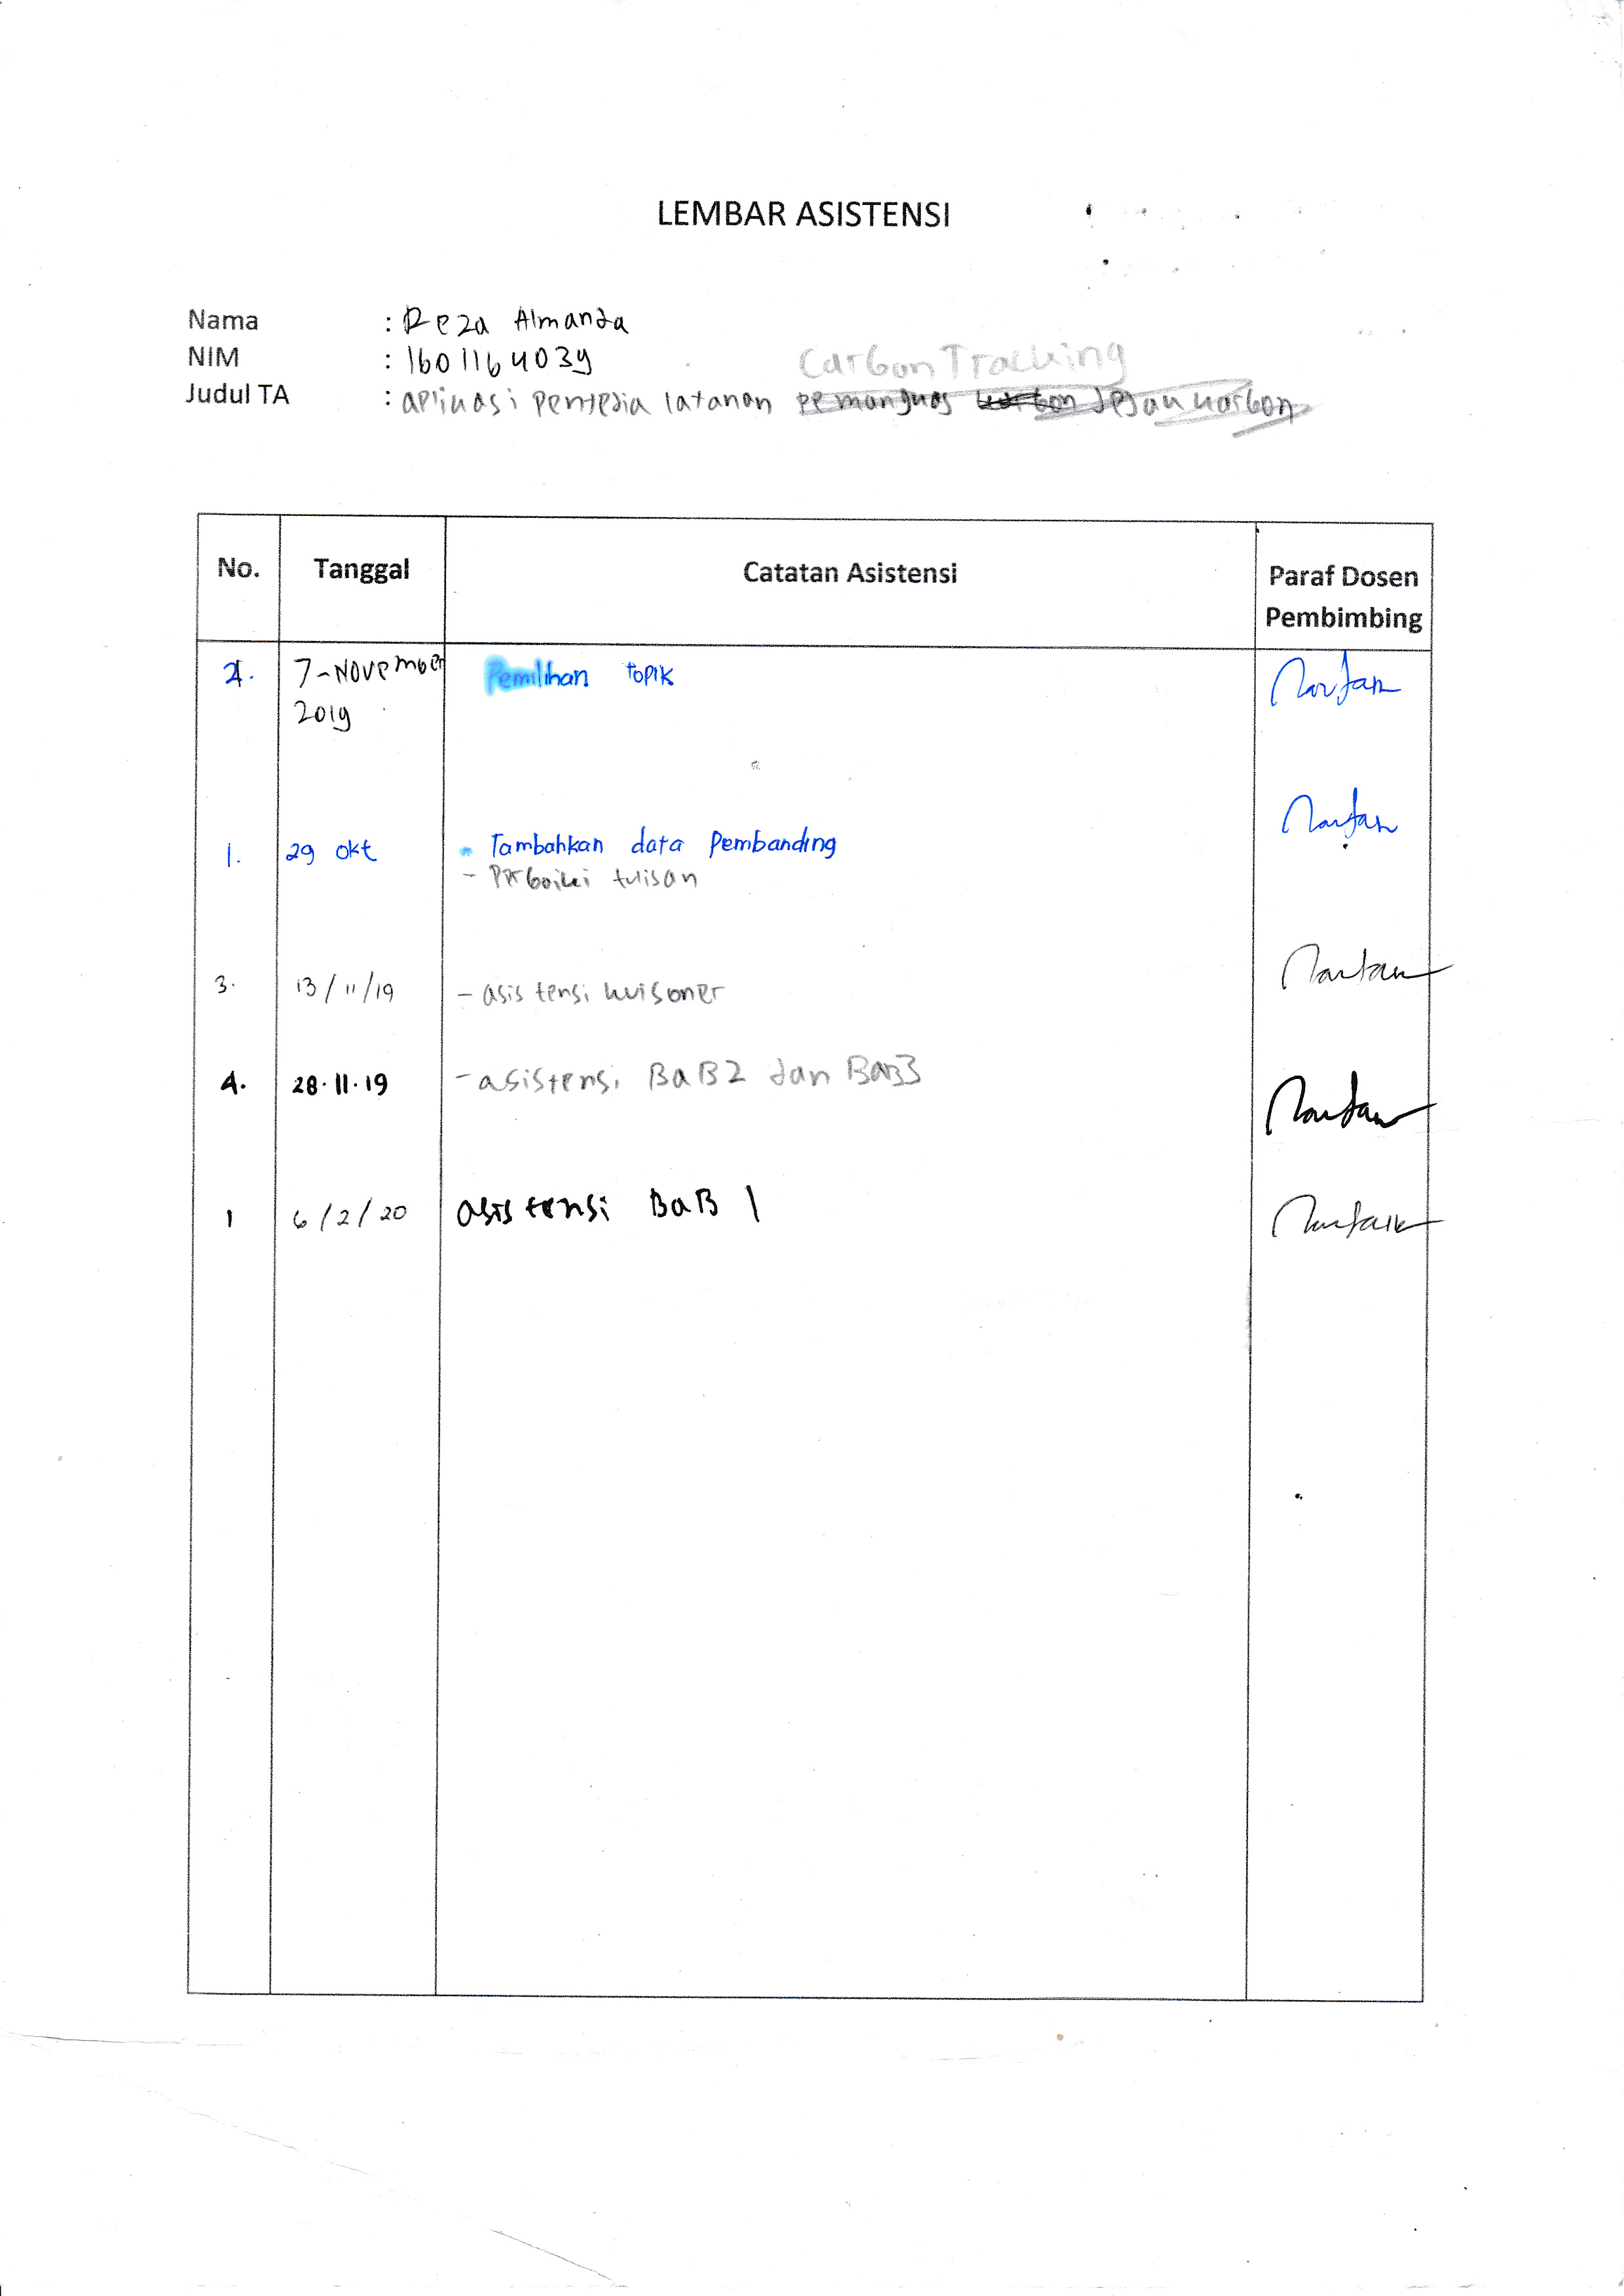 LEMBAR ASISTENSI
Nama : Reza Almanda
NIM : 1601164039
Carbon Tracking
Judul TA : aplikasi penyedia layanan pemangkas karbon jejak karbon
No. Tanggal Catatan Asistensi Paraf Dosen Pembimbing
2. 7-November 2019 Pemilihan topik
1. 29 okt - Tambahkan data Pembanding
- Perbaiki tulisan
3. 13/11/19 - asistensi kuisoner
4. 28.11.19 - asistensi BaB2 dan BaB3
1 6/2/20 asistensi BaB 1